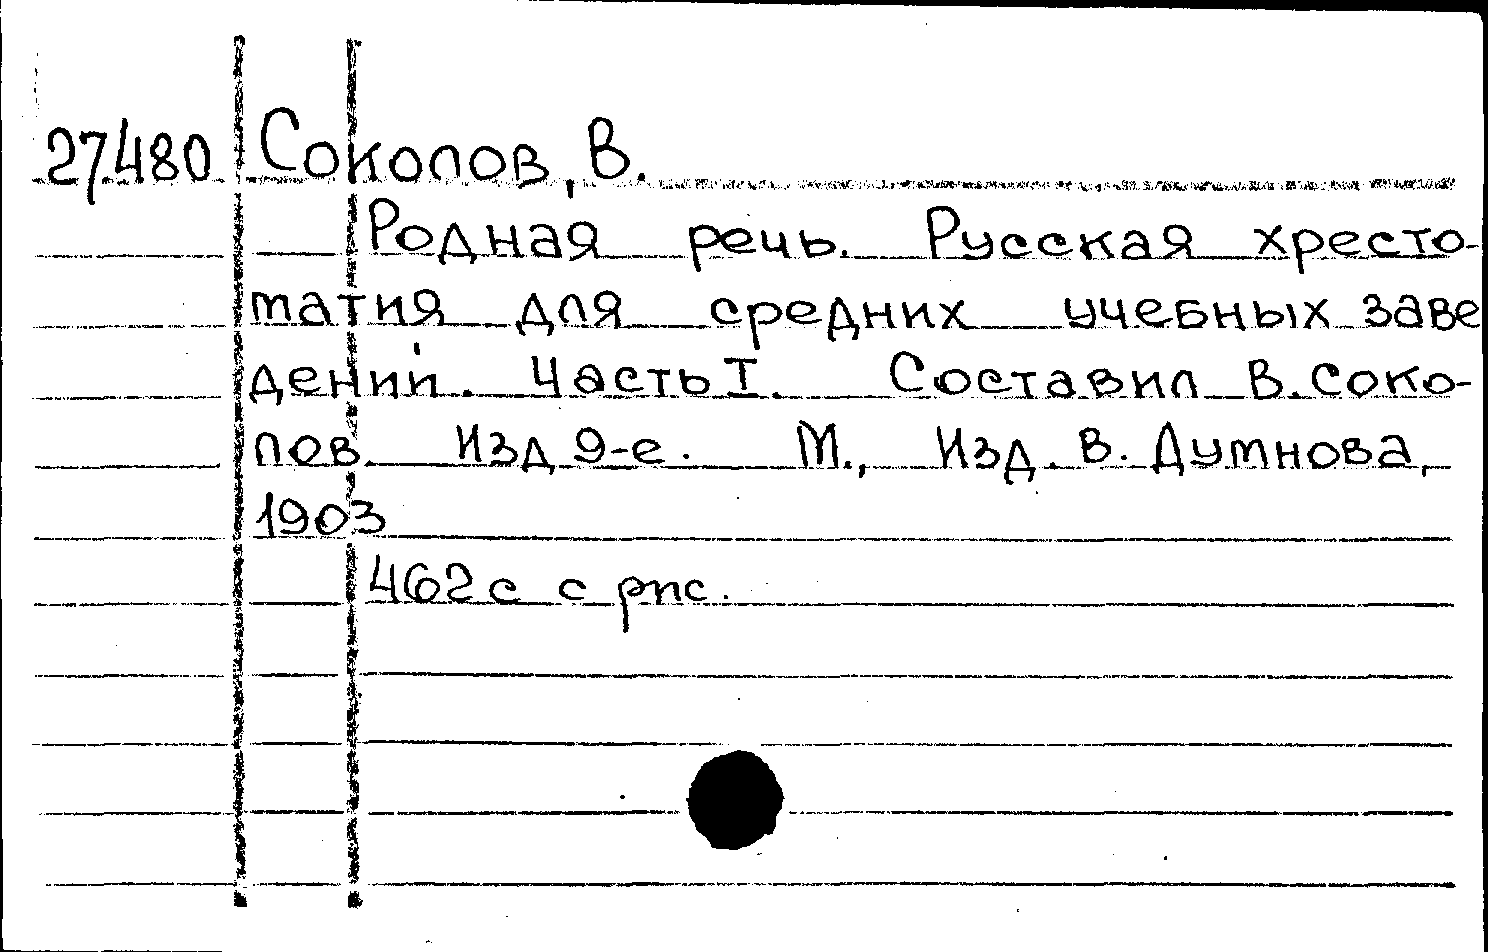 27480 Соколов, В.
Родная речь. Русская хресто-
матия для средних учебных заве
дений. Часть I. Составил В. Соко-
лов. Изд 9-е. М., Изд. В. Думнова,
1903
462 с с рис.